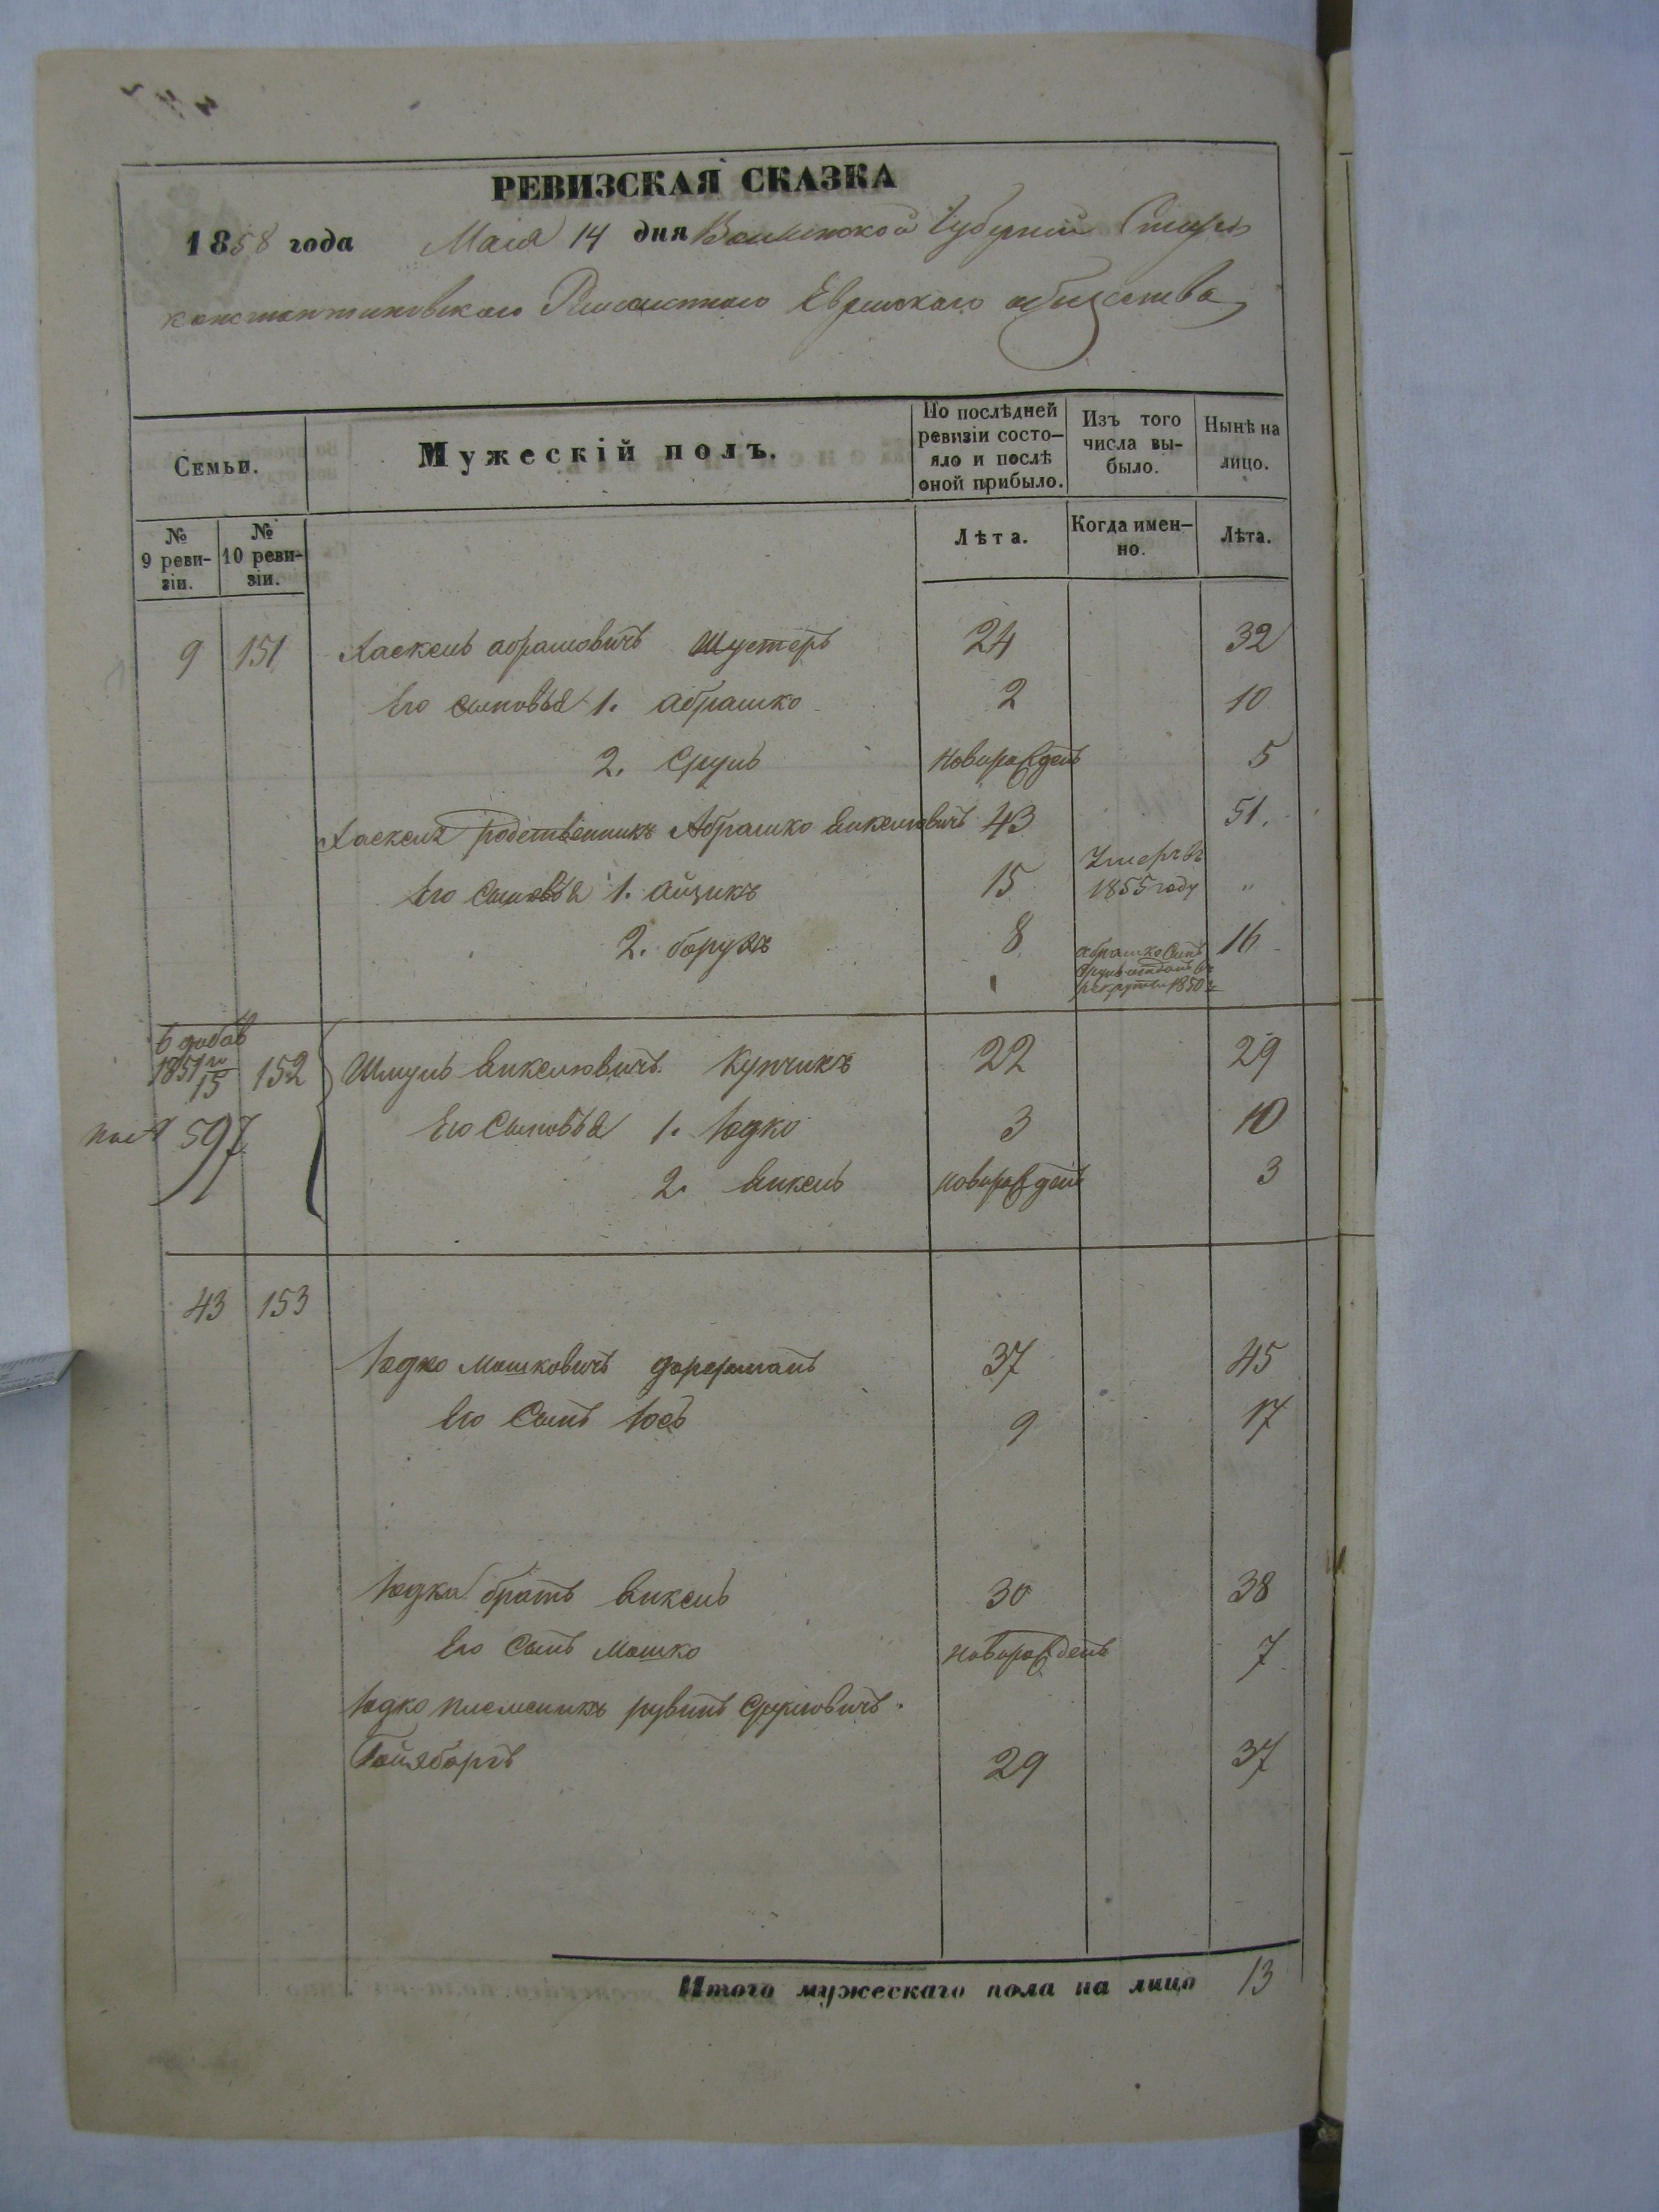 РЕВИЗСКАЯ СКАЗКА
1858 года Маія 14 дня Волынской Губерніи Старо
константиновского Еврейского общества
Семьи.
Мужескій полъ.
По послѣдней ревизіи состо-яло и послѣ оной прибыло.
Изъ того числа вы-было.
Нынѣ на лицо.
№ 9 реви-зіи.
№ 10 реви-зіи.
Лѣта.
Когда имен-но.
Лѣта.
9 151 Хаскель абрамовичъ Шустеръ 24 32
Его сыновья 1. абрашко 2 10
2. Сруль новорожденъ 5
Хаскеля родственникъ Абрашко Янкелювичъ 43 51.
Его Сыновья 1. айзикъ 15 Умеръ въ 1855 году "
2. борухъ 8 16
абрашко Сынъ
Сруль отданъ въ
рекруты 1850 г
в добав
1851 го
15 152 Шмуль Янкелювичъ Купчикъ 22 29
597 Его Сыновья 1. Юдко 3 10
2. Янкель новорожденъ 3
43 153
Юдко Мошковичъ форерманъ 37 45
Его Сынъ Юсь 9 17
Юдка братъ Янкель 30 38
Его Сынъ Мошко новорожденъ 7
Юдко племеникъ рувинъ Срулювичъ
29 37
Итого мужескаго пола на лицо 13